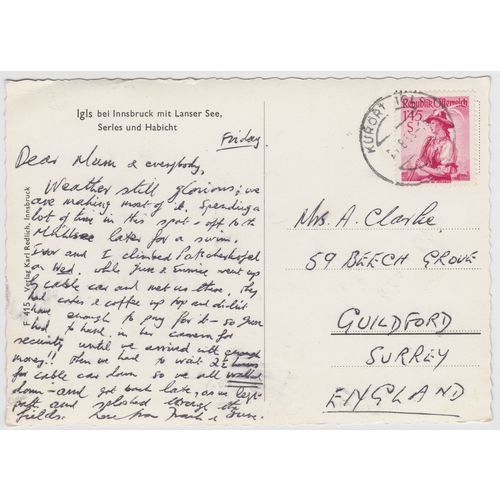 Igls bei Innsbruck mit Lanser See,
Serles und Habicht
Friday.
Dear Mum & everybody,
Weather still glorious; we
are making most of it. Spending a
lot of time in this spot & off to the
later for a swim.
and I climbed Patscherkofel
on Wed. while June & went up
by cable car and met us there. They
had cakes & coffee up top and didn't
have enough to pay for it – so June
had to hand in his camera for
security until we arrived with enough
money!! Then we had to wait 2½ hours
for cable car down so we all walked
down – and got back late, as we left
path and splashed through the
fields. Love from & June.
F 415 Verlag Karl Redlich, Innsbruck
KURORT IGLS
Republik Österreich
1.45
S
Mrs. A. Clarke,
59 BEECH GROVE
GUILDFORD
SURREY
ENGLAND